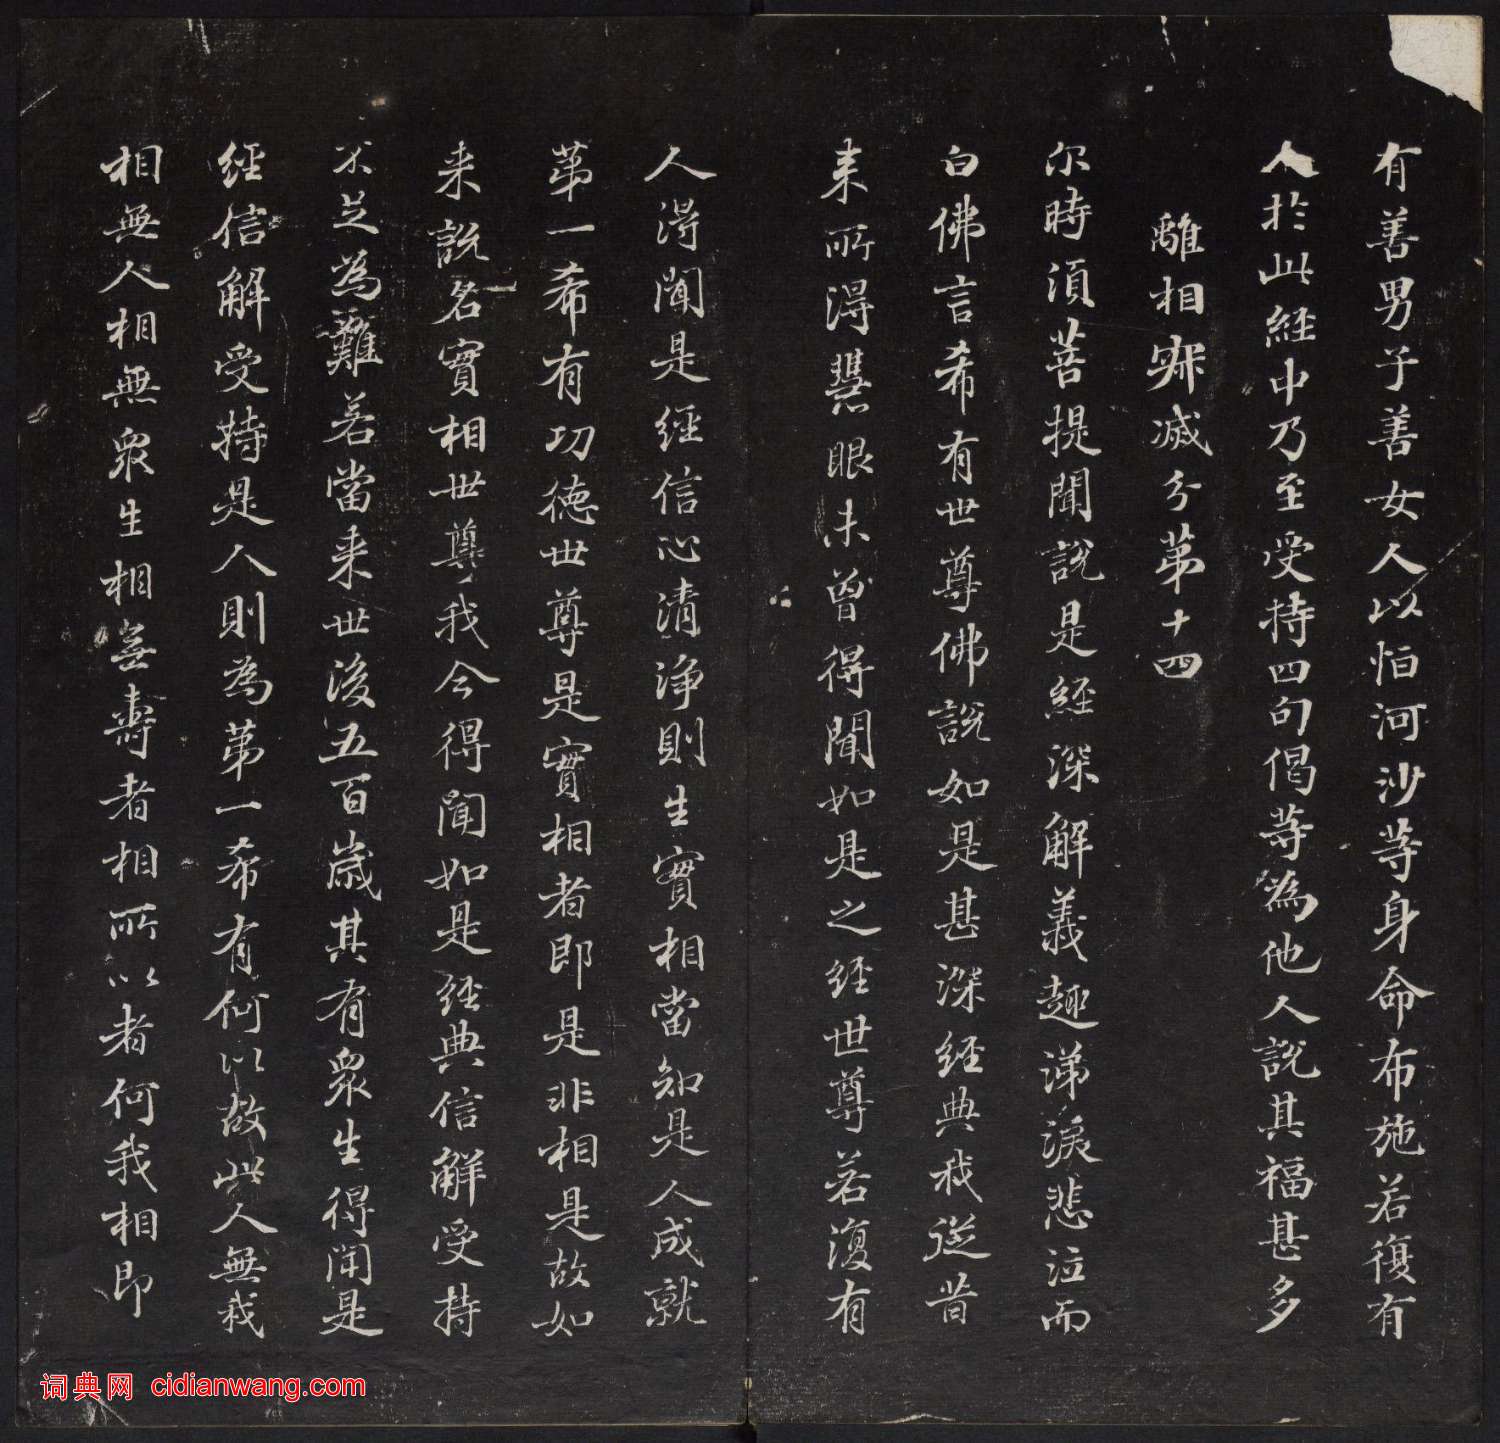 有善男子善女人以恒河沙等身命布施若復有
人於此經中乃至受持四句偈等為他人說其福甚多
離相寂滅分第十四
尔時須菩提聞說是經深解義趣涕淚悲泣而
白佛言希有世尊佛說如是甚深經典我從昔
來所得慧眼未曾得聞如是之經世尊若復有
人得聞是經信心清淨則生實相當知是人成就
第一希有功德世尊是實相者即是非相是故如
來說名實相世尊我今得聞如是經典信解受持
不足為難若當來世後五百歲其有眾生得聞是
經信解受持是人則為第一希有何以故此人無我
相無人相無眾生相無壽者相所以者何我相即
词典网 cidianwang.com